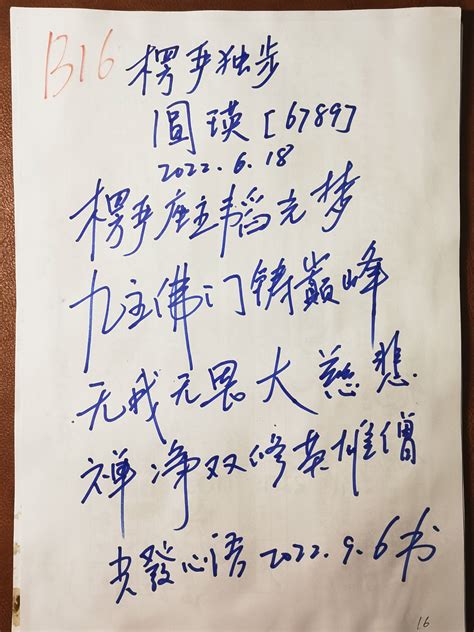 B16
楞严独步
圆瑛 [6789]
2022.6.18
楞严座主韬光梦
九主佛门铸巅峰
无我无畏大慈悲
禅净双修英雄僧
发心语 2022.9.6书
16